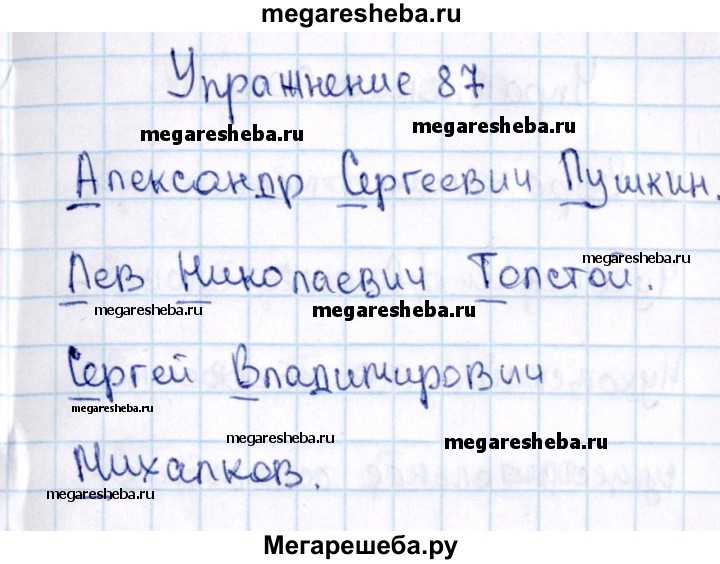 megaresheba.ru
Упражнение 87
megaresheba.ru megaresheba.ru
Александр Сергеевич Пушкин.
megaresheba.ru
Лев Николаевич Толстой.
megaresheba.ru megaresheba.ru
Сергей Владимирович
megaresheba.ru
megaresheba.ru megaresheba.ru
Михалков.
megaresheba.ru
Мегарешеба.ру